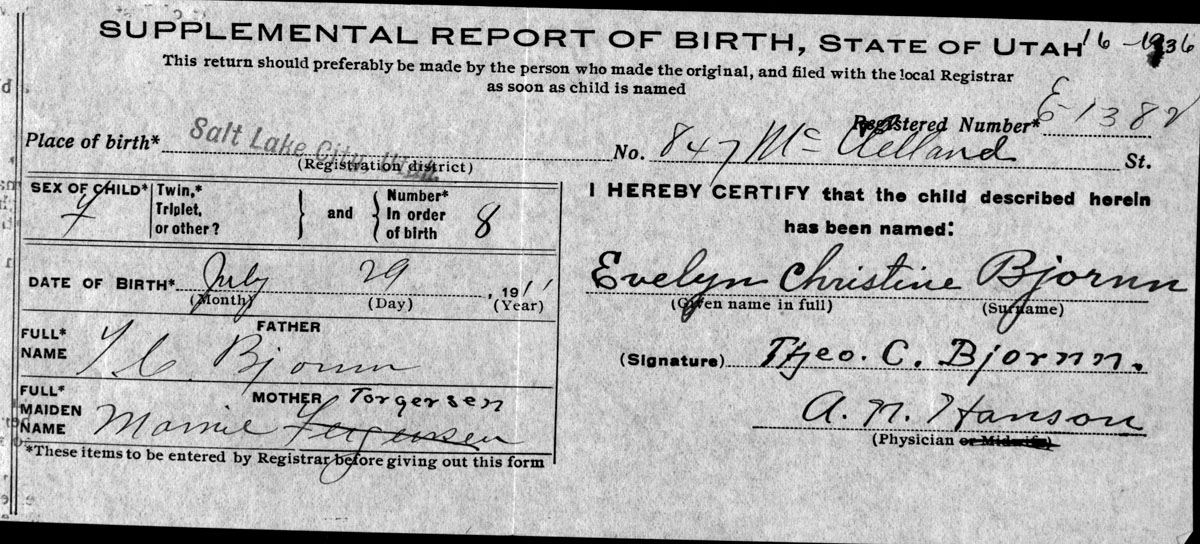 SUPPLEMENTAL REPORT OF BIRTH, STATE OF UTAH 16-1936
This return should preferably be made by the person who made the original, and filed with the local Registrar
as soon as child is named
Registered Number* E-1382
Place of birth* Salt Lake City, Utah.
(Registration district)
No. 847 Mc Clelland St.
SEX OF CHILD* F
Twin,*
Triplet,
or other?
and
Number*
In order
of birth
8
I HEREBY CERTIFY that the child described herein
has been named:
DATE OF BIRTH* July 29, 1911
(Month) (Day) (Year)
Evelyn Christine Bjornn
(Given name in full) (Surname)
FATHER
FULL*
NAME
T C. Bjornn
(Signature) Theo. C. Bjornn.
FULL*
MAIDEN
NAME
MOTHER Torgersen
Mamie Fergersen
A. N. Hanson
(Physician or Midwife)
*These items to be entered by Registrar before giving out this form